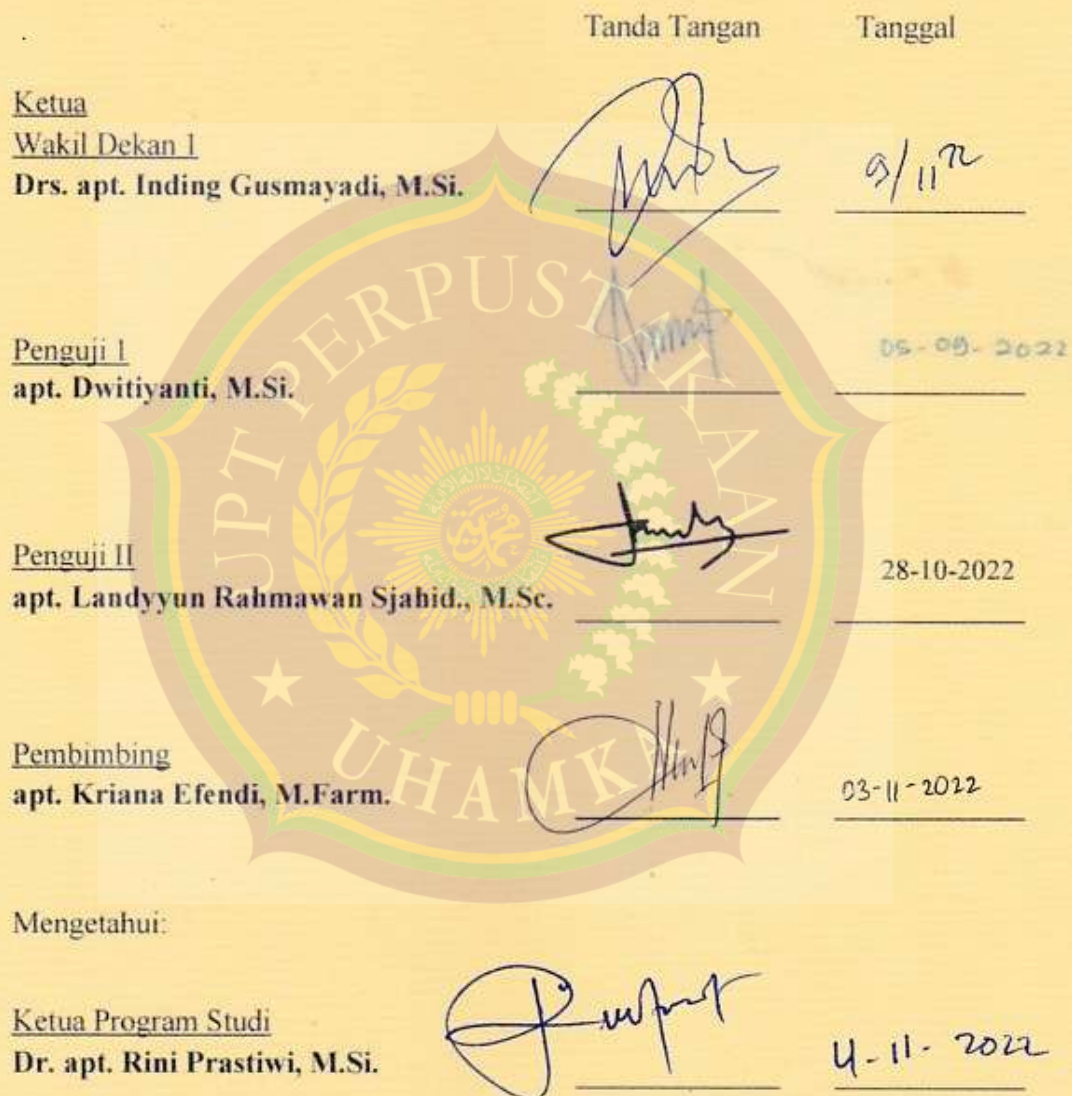 Tanda Tangan Tanggal
Ketua
Wakil Dekan 1
Drs. apt. Inding Gusmayadi, M.Si. 9/11 22
Penguji 1
apt. Dwitiyanti, M.Si. 05-09-2022
Penguji II
apt. Landyyun Rahmawan Sjahid., M.Sc. 28-10-2022
Pembimbing
apt. Kriana Efendi, M.Farm. 03-11-2022
Mengetahui:
Ketua Program Studi
Dr. apt. Rini Prastiwi, M.Si. 4-11-2022
UPT PERPUSTAKAAN
UHAMKA